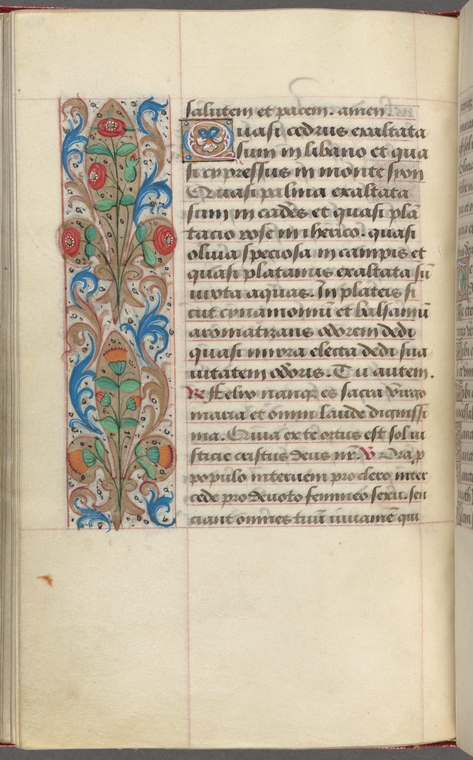 salutem et pacem. amen
Quasi cedrus exaltata
sum in libano et qua
si cypressus in monte syon
Quasi palma exaltata
sum in cades et quasi pla
tacio rose in iherico. quasi
oliua speciosa in campis et
quasi platanus exaltata sū
iuxta aquas. In plateis si
cut cynamomū et balsamū
aromatizans odorem dedi
quasi mirra electa dedi sua
uitatem odoris. Tu autem.
R Felix nanque es sacra virgo
maria et omni laude dignissi
ma. Quia ex te ortus est sol iu
sticie cristus deus nr̄. V Ora p
populo interueni pro clero inter
cede pro deuoto femineo sexu. sen
ciant omnes tuū iuuamē qui